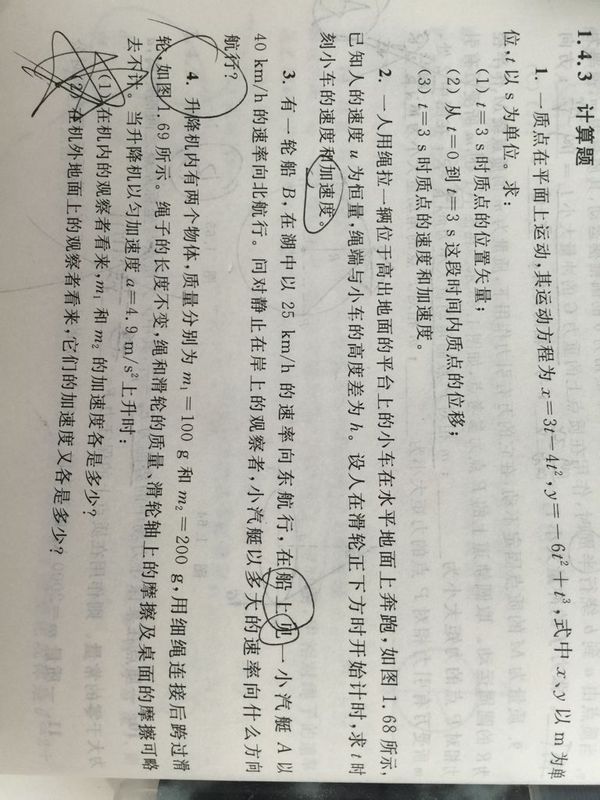 1.4.3 计算题
1. 一质点在平面上运动,其运动方程为 x=3t-4t²,y=-6t²+t³,式中 x、y 以 m 为单
位,t 以 s 为单位。求:
(1) t=3 s 时质点的位置矢量;
(2) 从 t=0 到 t=3 s 这段时间内质点的位移;
(3) t=3 s 时质点的速度和加速度。
2. 一人用绳拉一辆位于高出地面的平台上的小车在水平地面上奔跑,如图 1.68 所示,
已知人的速度 u 为恒量,绳端与小车的高度差为 h。设人在滑轮正下方时开始计时,求 t 时
刻小车的速度和加速度。
3. 有一轮船 B,在湖中以 25 km/h 的速率向东航行,在船上见一小汽艇 A 以
40 km/h 的速率向北航行。问对静止在岸上的观察者,小汽艇以多大的速率向什么方向
航行?
4. 升降机内有两个物体,质量分别为 m₁=100 g 和 m₂=200 g,用细绳连接后跨过滑
轮,如图 1.69 所示。绳子的长度不变,绳和滑轮的质量、滑轮轴上的摩擦及桌面的摩擦可略
去不计。当升降机以匀加速度 a=4.9 m/s² 上升时:
(1) 在机内的观察者看来,m₁ 和 m₂ 的加速度各是多少?
(2) 在机外地面上的观察者看来,它们的加速度又各是多少?